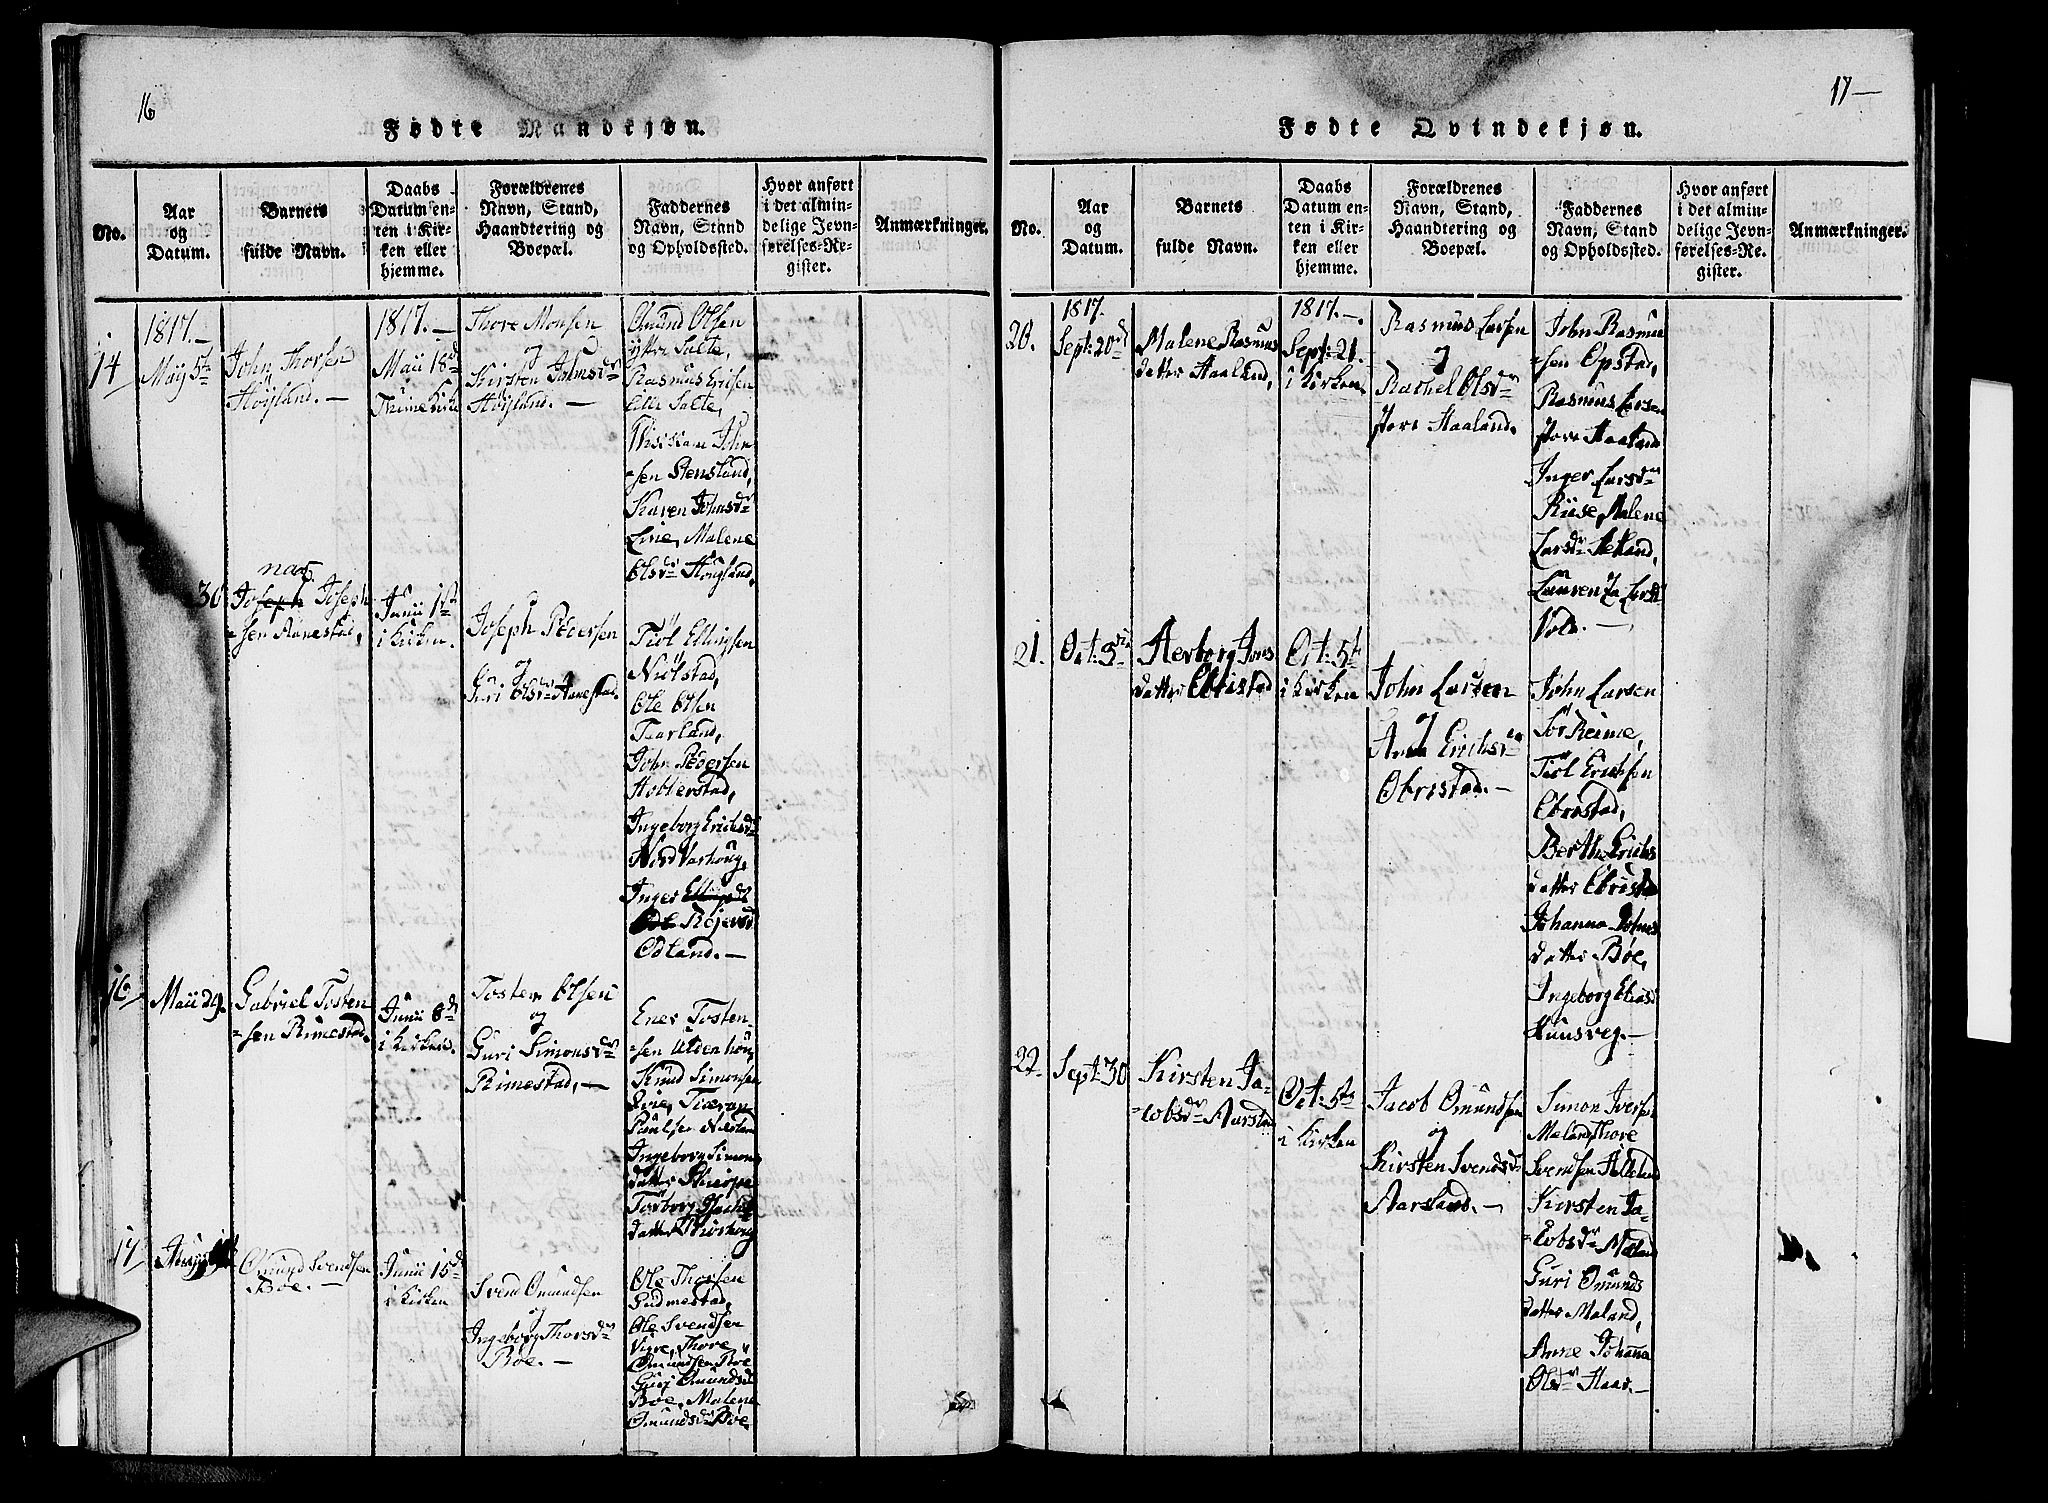 16
Fødte Mandkjøn.
No.
Aar
og
Datum.
Barnets
fulde Navn.
Daabs
Datum en-
ten i Kir-
ken eller
hjemme.
Forældrenes
Navn, Stand,
Haandtering og
Boepæl.
Faddernes
Navn, Stand
og Opholdssted.
Hvor anført
i det almin-
delige Jevn-
førelses-Re-
gister.
Anmærkninger.
14
1817.—
May 5te
John Thorsen
Høyland.—
1817.—
Maii 18de
Thime Kirke
Thore Monsen
og
Kirsten Johnsdr
Høyland.—
Omund Olsen
yttre Salte,
Rasmus Ericsen
Salte,
John
sen Stensland,
Karen Johnsdr
Liie, Malene
Olsdr Hougland,
30
Joseph Joseph
sen Aanestad,
Junii 1ste
i Kirken.
Joseph Pedersen
og
Guri Olsdr Aanestad.
Tiøl Ellingsen
Niølstad,
Ole Olsen
Tiarland,
John Pedersen
Hobberstad,
Ingeborg Erichsdr
Nord Varhoug,
Inger
Odland.—
16
Maii 29.
Gabriel Tosten
sen Rimestad.
Junii 8de
i Kirken.
Tosten Olsen
og
Guri Simonsdr
Rimestad,—
Ener Tosten-
sen
Knud Simonsen
Ingeborg Simons
datter
Torborg
datter
17
Omund Svendsen
Boe.—
Junii 15de
i Kirken
Svend Omundsen
og
Ingeborg Thorsdr
Boe.—
Ole Thorsen
Gudmestad,
Ole Svendsen
Thore
Omundsen Boe
Guri Omundsdr
Boe, Malene
Omundsdr Boe
17—
Fødte Qvindekjøn.
No.
Aar
og
Datum.
Barnets
fulde Navn.
Daabs
Datum en-
ten i Kir-
ken eller
hjemme.
Forældrenes
Navn, Stand,
Haandtering og
Boepæl.
Faddernes
Navn, Stand
og Opholdssted.
Hvor anført
i det almin-
delige Jevn-
førelses-Re-
gister.
Anmærkninger.
20.
1817.
Sept: 20de
Malene Rasmus
datter Haaland,
1817.—
Sept: 21.
i Kirken
Rasmus Larsen
og
Rachel Olsdr
store Haaland.
John Rasmus
sen Opstad,
Rasmus Larsen
store Haaland
Inger Larsdr
Riise, Malene
Larsdr
Laurenza Larsdr
Vold.—
21.
Oct: 3die
Herborg Jons
datter Obristad
Oct: 5te
i Kirken
John Larsen
og
Anna Erichsdr
Obrestad.—
John Larsen
Sør Reime,
Tiøl Erichsen
Obrestad,
Berthe Erichs
datter Obrista
Johanna Johns
datter Bøe,
Ingeborg Eliasd
Huusveg.—
22.
Sept: 30
Kirsten Ja-
cobsdr Aarsland
Oct: 5te
i Kirken
Jacob Omundsen
og
Kirsten Svendsdr
Aarsland.—
Simon Iversen
Maland Thore
Svendsen
Kirsten Ja-
cobsdr Maland
Guri Omunds
datter Maland,
Anne Johanna
Olsdr Haar.—